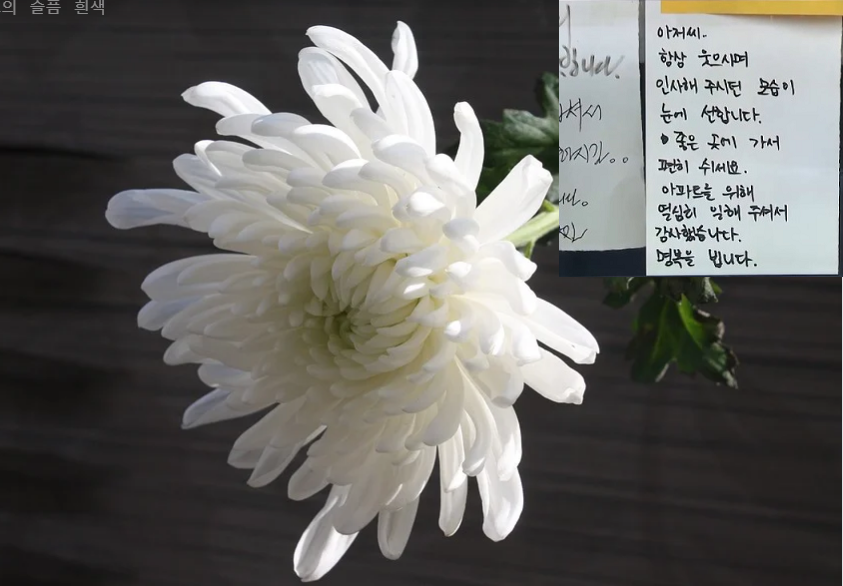 의 슬픔 흰색
합니다.
아저씨..
항상 웃으시며
인사해 주시던 모습이
눈에 선합니다.
좋은 곳에 가서
편히 쉬세요.
아파트를 위해
열심히 일해 주셔서
감사했습니다.
명복을 빕니다.